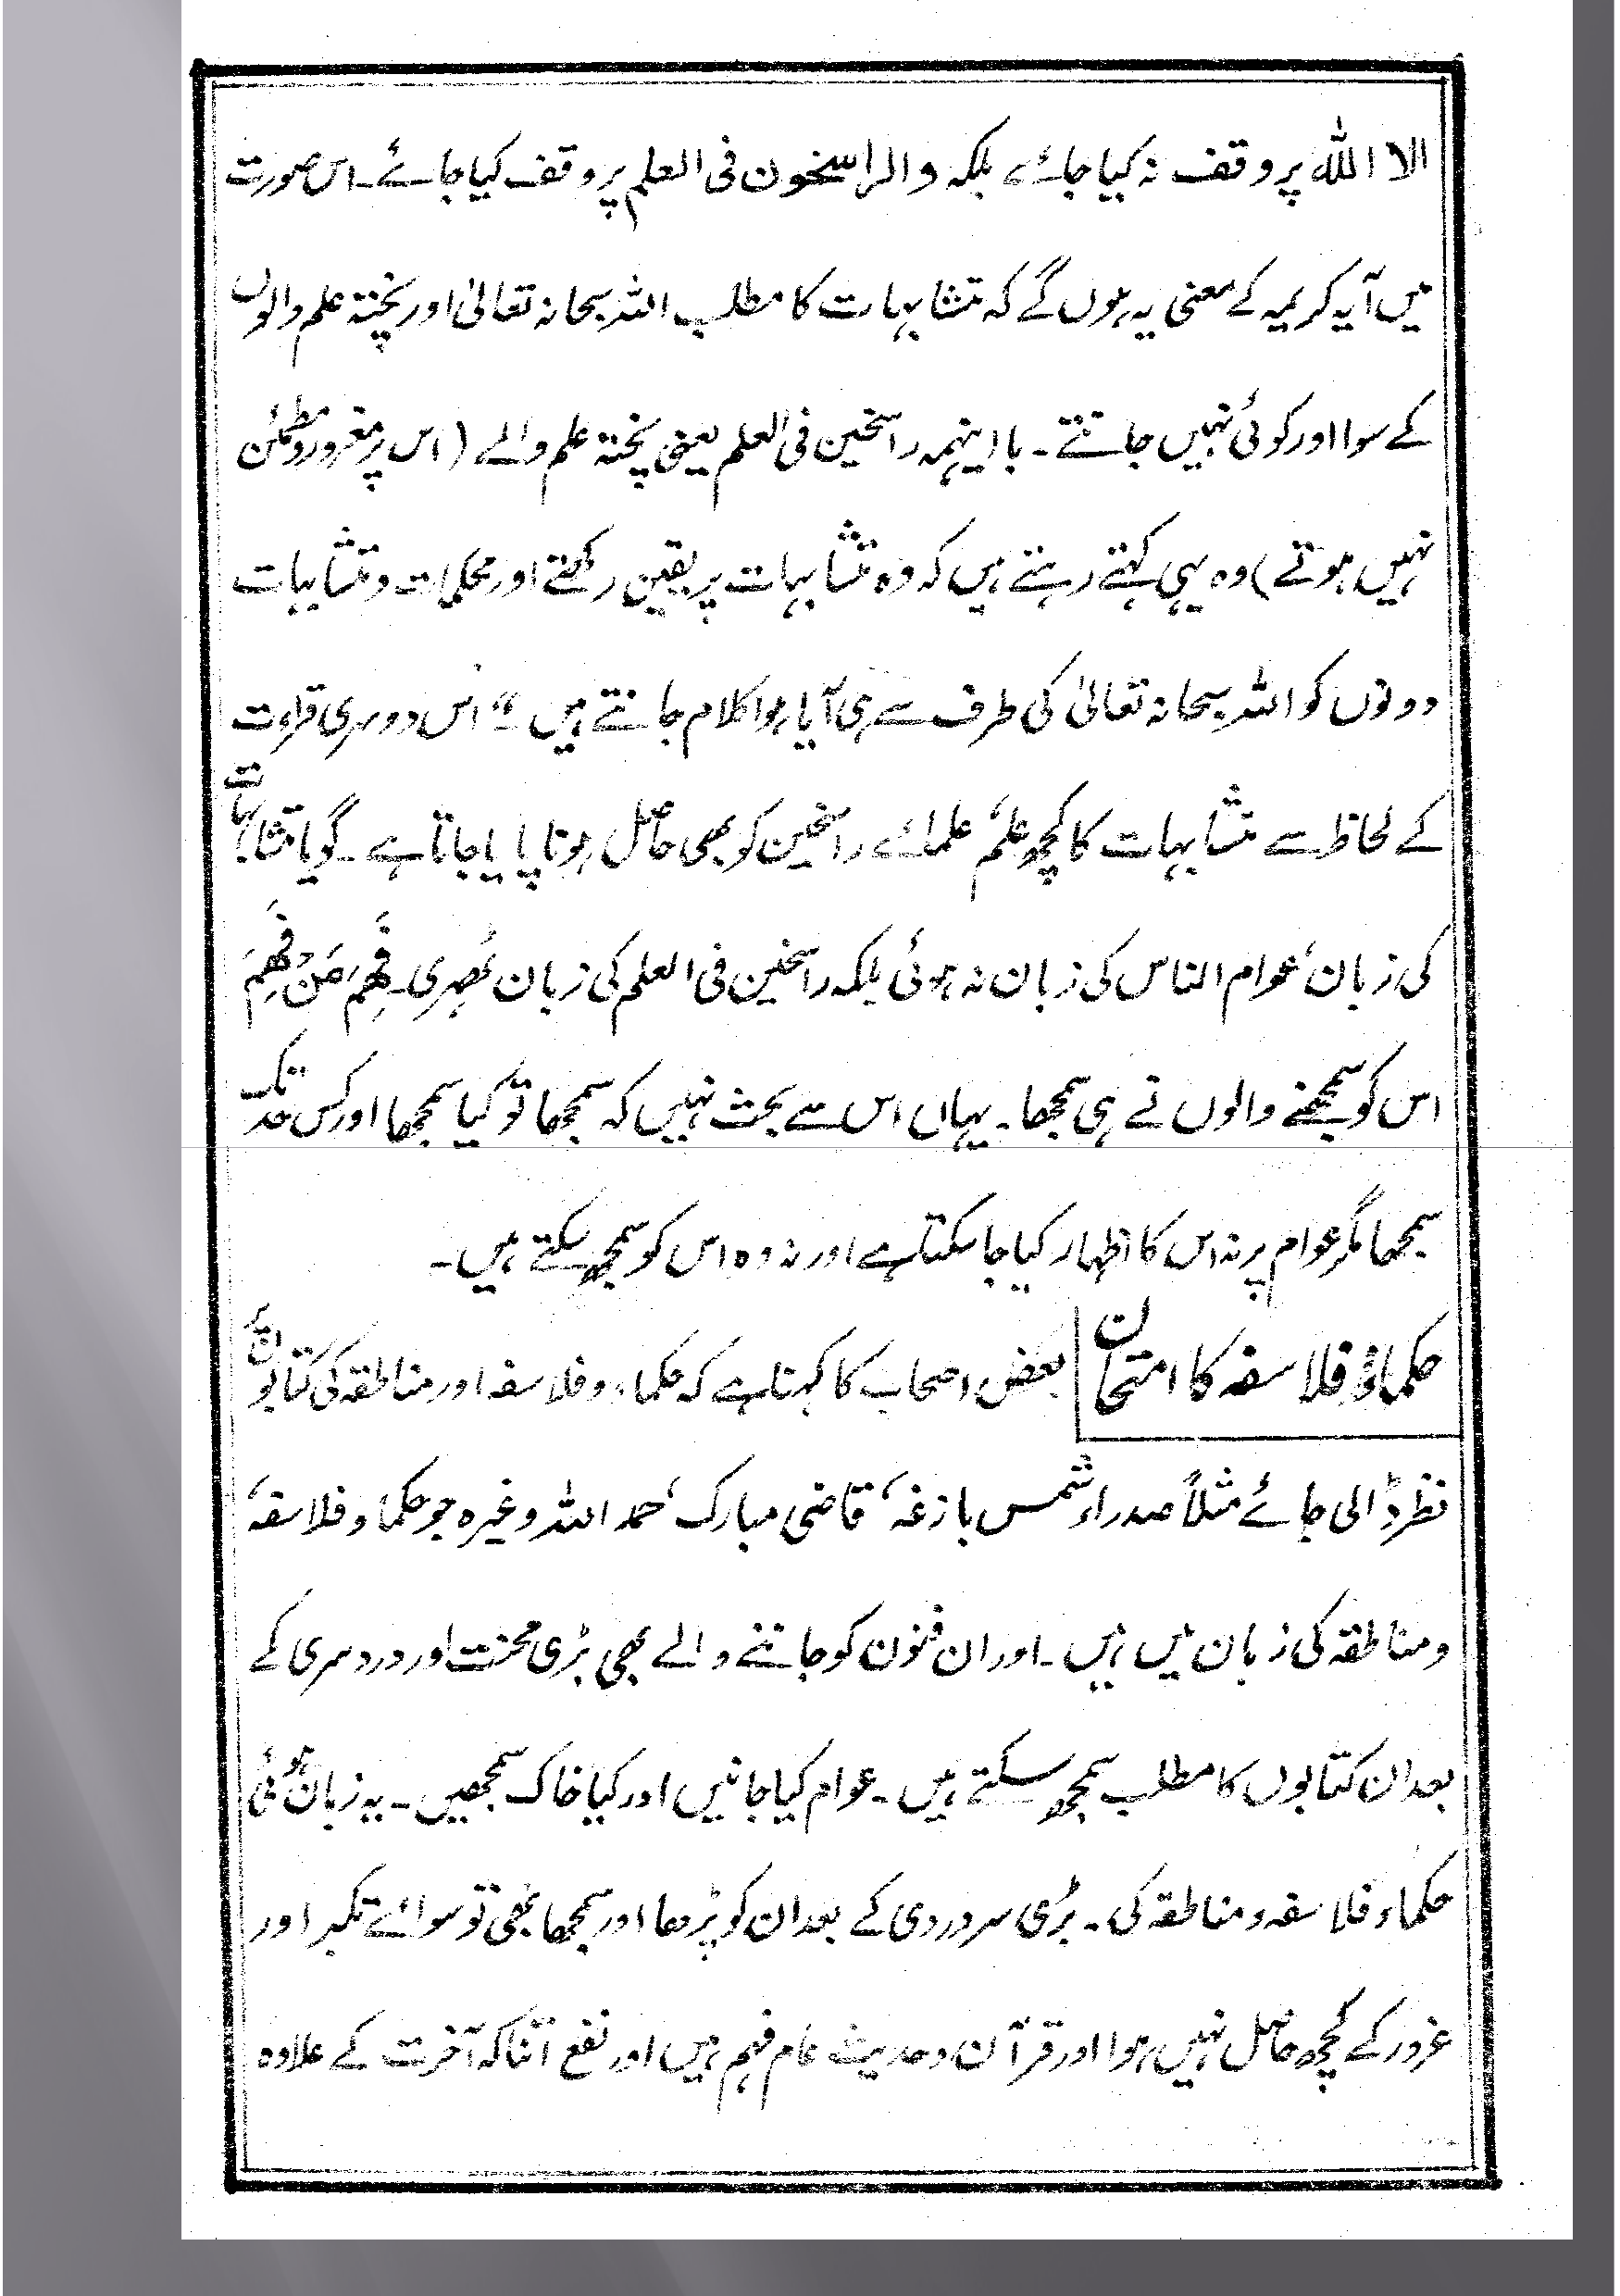 الا اللہ پر وقف نہ کیا جائے بلکہ والراسخون فی العلم پر وقف کیا جائے۔ اس صورت
میں آیہ کریمہ کے معنی یہ ہوں گے کہ متشابہات کا مطلب اللہ سبحانہ تعالیٰ اور پختہ علم والوں
کے سوا اور کوئی نہیں جانتے۔ با اینہمہ راسخین فی العلم یعنی پختہ علم والے (اس پر مغرور و مطمئن
نہیں ہوتے) وہ یہی کہتے رہتے ہیں کہ وہ متشابہات پر یقین رکھتے اور محکمات و متشابہات
دونوں کو اللہ سبحانہ تعالیٰ کی طرف سے ہی آیا ہوا کلام جانتے ہیں۔“ اس دوسری قراءت
کے لحاظ سے متشابہات کا کچھ علم، علمائے راسخین کو بھی حاصل ہونا پایا جاتا ہے۔ گویا متشابہات
کی زبان، عوام الناس کی زبان نہ ہوئی بلکہ راسخین فی العلم کی زبان ٹھہری۔ فَہِمَ مَنْ فَہِمَ
اس کو سمجھنے والوں نے ہی سمجھا۔ یہاں اس سے بحث نہیں کہ سمجھا تو کیا سمجھا اور کس حد تک
سمجھا مگر عوام پر نہ اس کا اظہار کیا جا سکتا ہے اور نہ وہ اس کو سمجھ سکتے ہیں۔
حکماؤ فلاسفہ کا امتحان
بعض اصحاب کا کہنا ہے کہ حکماء و فلاسفہ اور مناطقہ کی کتابوں پر
نظر ڈالی جائے مثلاً صدرا، شمس بازغہ، قاضی مبارک، حمد اللہ وغیرہ جو حکما و فلاسفہ،
و مناطقہ کی زبان میں ہیں۔ اور ان فنون کو جاننے والے بھی بڑی محنت اور درد سری کے
بعد ان کتابوں کا مطلب سمجھ سکتے ہیں۔ عوام کیا جانیں اور کیا خاک سمجھیں۔ یہ زبان ہوئی
حکماء فلاسفہ و مناطقہ کی۔ بڑی سر دردی کے بعد ان کو پڑھا اور سمجھا بھی تو سوائے تکبر اور
غرور کے کچھ حاصل نہیں ہوا اور قرآن و حدیث عام فہم ہیں اور نفع اتنا کہ آخرت کے علاوہ